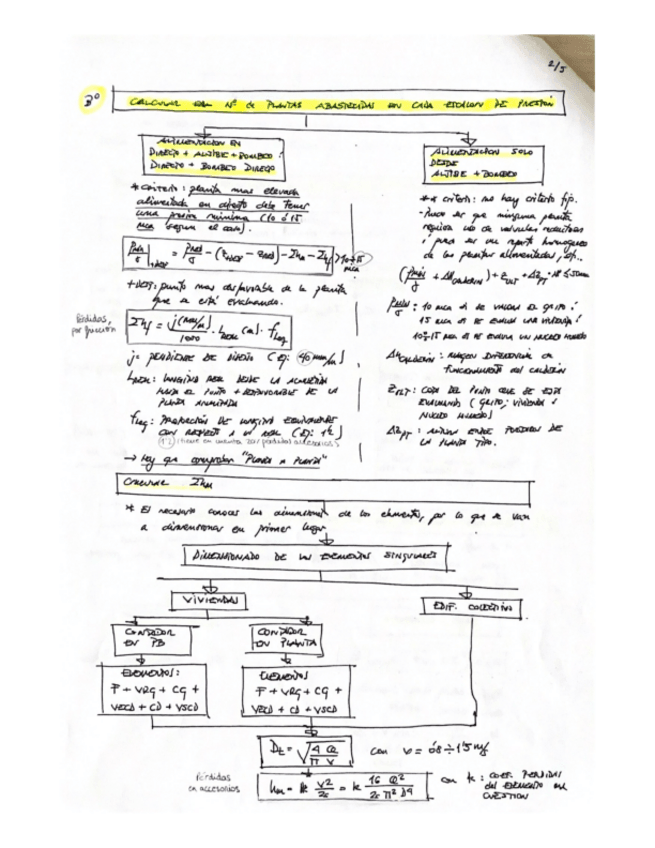 2/5
3º
CALCULAR EL Nº DE PLANTAS ABASTECIDAS EN CADA ESCALON DE PRESIÓN
ALIMENTACION EN
DIRECTO + ALJIBE + BOMBEO
DIRECTO + BOMBEO DIRECTO
* criterio: planta mas elevada
alimentada en directo debe tener
una presión mínima (10 ó 15
mca según el caso).
>10÷15
mca
+DESF: punto mas desfavorable de la planta
que se está evaluando.
Pérdidas,
por fricción
Σhf = j(mm/m)/1000 · LREAL (m) · fLeq
j = PENDIENTE DE DISEÑO (Ej: 40 mm/m)
LREAL: LONGITUD REAL DESDE LA ACOMETIDA
HASTA EL PUNTO + DESFAVORABLE DE LA
PLANTA ANALIZADA
fLeq: PROPORCIÓN DE LONGITUD EQUIVALENTE
CON RESPECTO A LA REAL (Ej: 1'2)
(1'2) (tiene en cuenta 20% pérdidas accesorios)
→ Hay que comprobar "PLANTA A PLANTA"
ALIMENTACION SOLO
DESDE
ALJIBE + BOMBEO
** criterio: no hay criterio fijo.
- Puede ser que ninguna planta
requiera uso de valvulas reductoras
ó puede ser un reparto homogeneo
de las plantas alimentadas, etc..
: 10 mca si se evalua el GRIFO;
15 mca si se evalua una VIVIENDA;
10÷15 mca si se evalua un NUCLEO HUMEDO
ΔHCALDERIN: MARGEN DIFERENCIAL DE
FUNCIONAMIENTO DEL CALDERIN
: COTA DEL PUNTO QUE SE ESTÁ
EVALUANDO (GRIFO; VIVIENDA ó
NUCLEO HUMEDO)
ΔZPT: ENTRE PUNTOS DE
LA PLANTA TIPO.
CALCULAR Σhm
** Es necesario conocer las dimensiones de los elementos, por lo que se van
a dimensionar en primer lugar
DIMENSIONADO DE LOS ELEMENTOS SINGULARES
VIVIENDAS
EDIF. COLECTIVO
CONTADOR
EN PB
CONTADOR
EN PLANTA
ELEMENTOS:
F + VRG + CG +
VECD + CD + VSCD
ELEMENTOS
F + VRG + CG +
VECD + CD + VSCD
Dt = √(4 Q / π V) con v = 0'8 ÷ 1'5 m/s
Pérdidas
en accesorios
hm = k v²/2g = k 16 Q²/2g π² D⁴ con k: COEF. PERDIDAS
del ELEMENTO EN
CUESTION